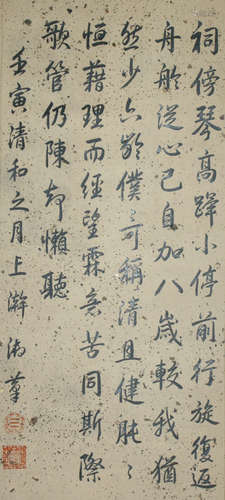 祠傍琴高蹕小停前行旋復返
舟舲從心已自加八歲較我猶
然少六齡僕僕可稱清且健肫肫
恒藉理而經望霖意苦同斯際
歌管仍陳却懶聽
壬寅清和之月上澣御筆